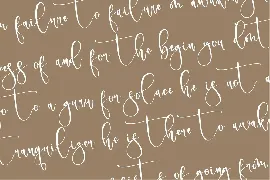 failure to failure on
ess of and for the begin you don't
to to a guru for solace he is not a
tranquilizer he is there to awake
of going from